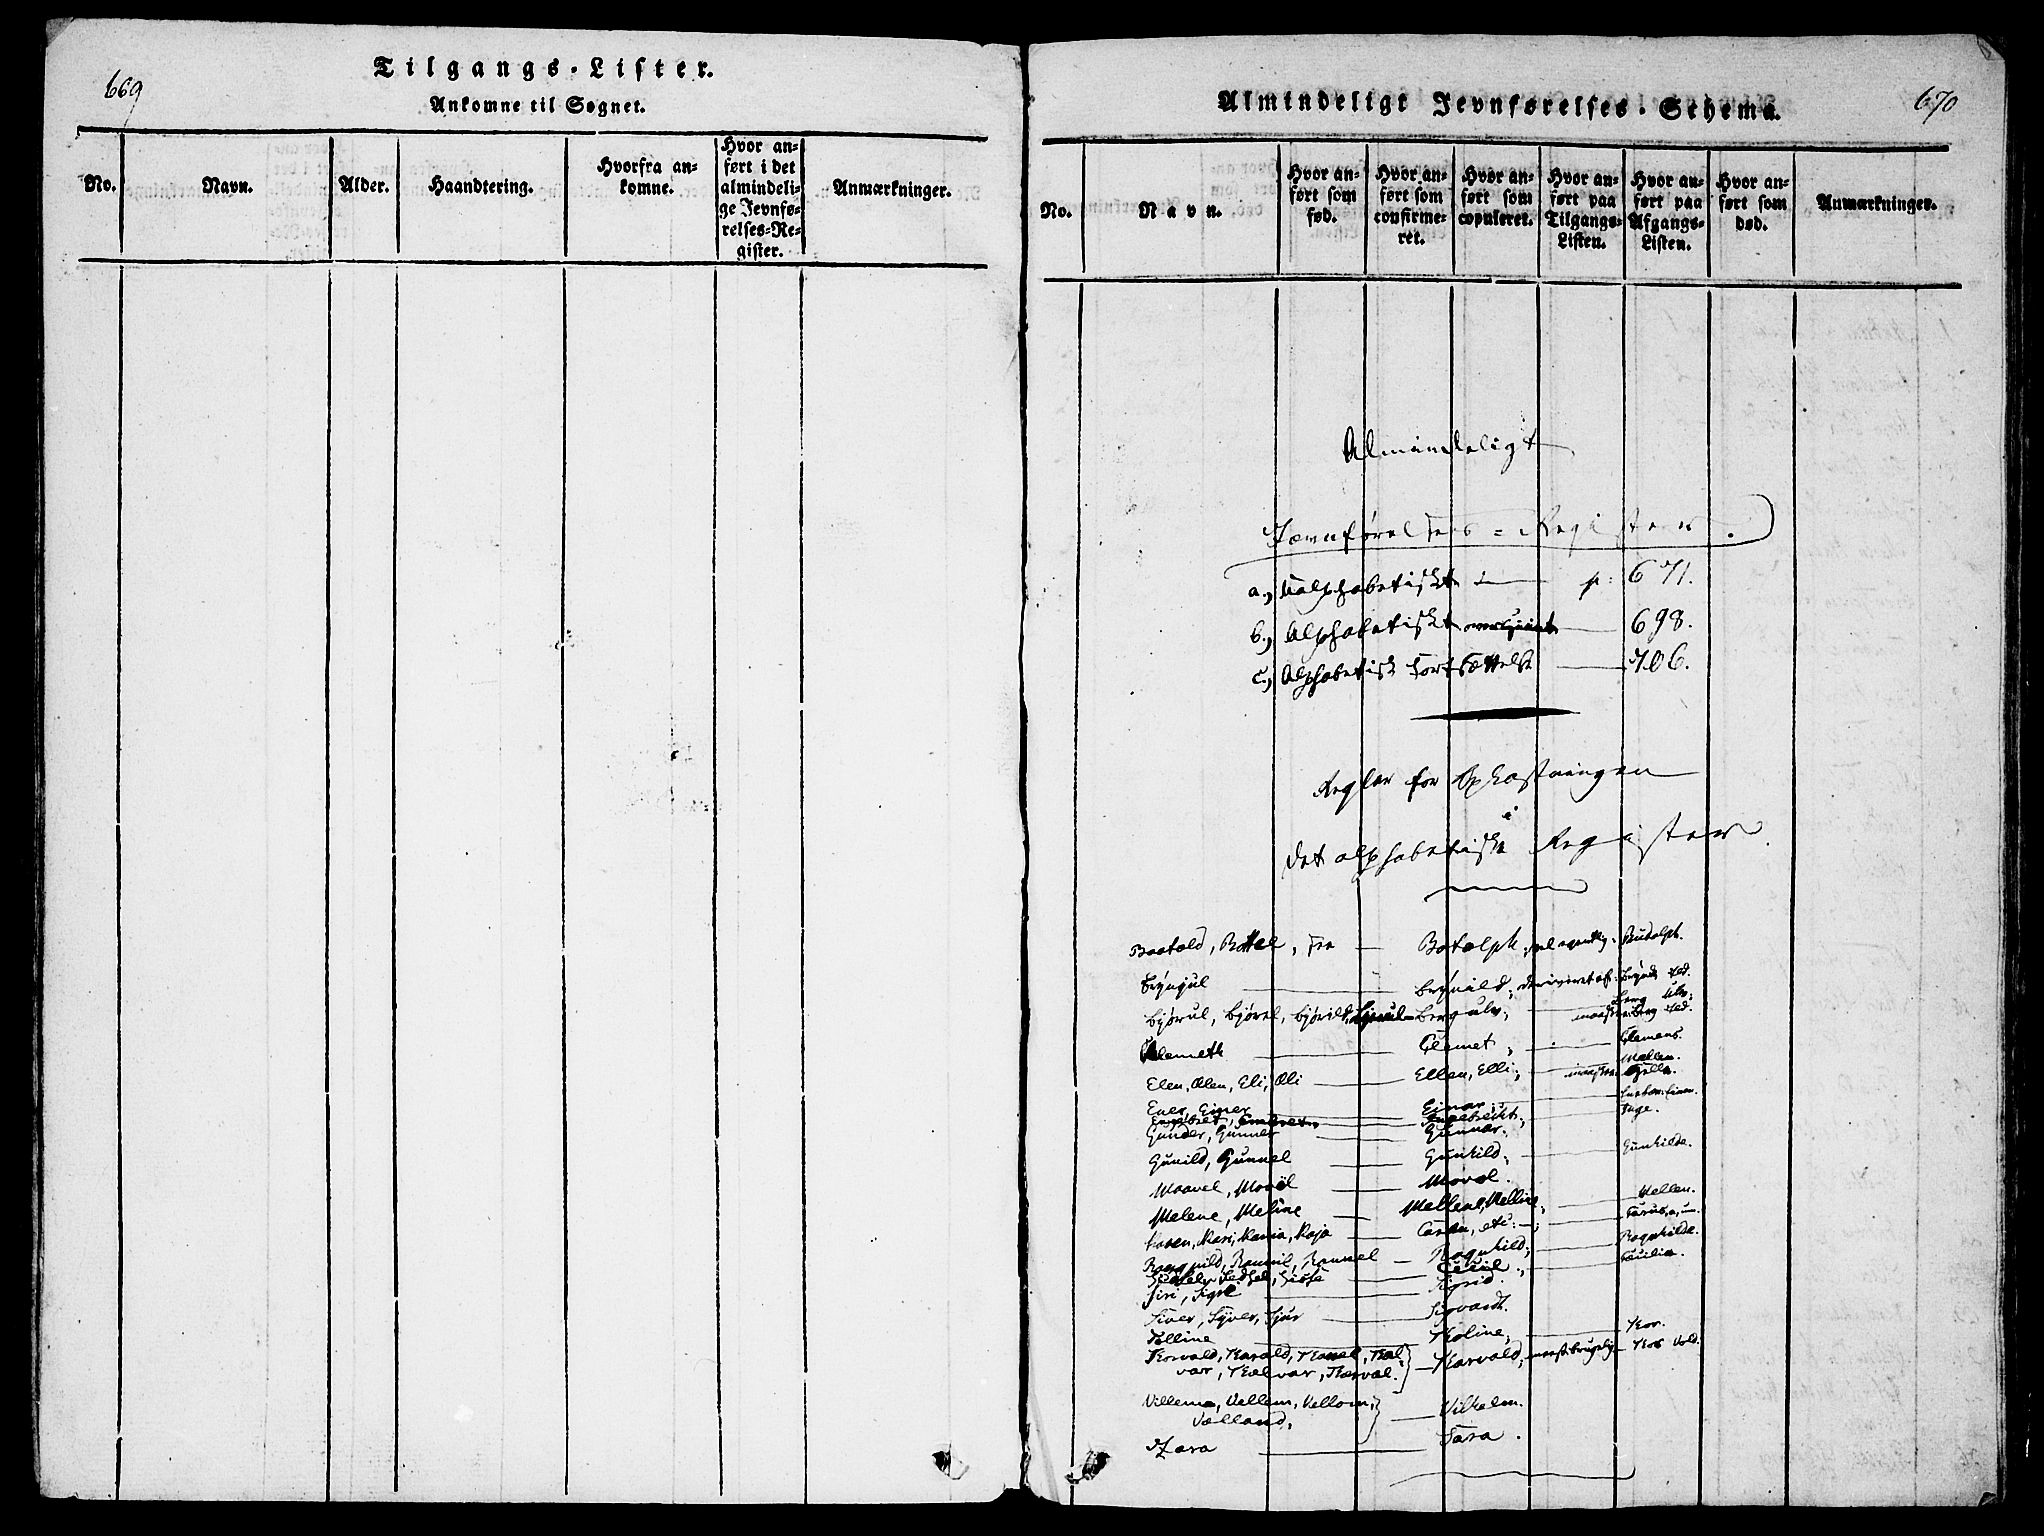 669
Tilgangs-Lister.
Ankomne til Sognet.
No.
Navn.
Alder.
Haandtering.
Hvorfra an-
komne.
Hvor an-
ført i det
almindeli-
ge Jevnfø-
relses-Re-
gister.
Anmærkninger.
Almindeligt Jevnførelses-Schema.
670
No.
Navn.
Hvor an-
ført som
fød.
Hvor an-
ført som
confirme-
ret.
Hvor an-
ført som
copuleret.
Hvor an-
ført paa
Tilgangs-
Listen.
Hvor an-
ført paa
Afgangs-
Listen.
Hvor an-
ført som
død.
Anmærkninger.
Almindeligt
Jævnførelses-Register.
a.) Ualphabetiskt p: 671.
b.) Alphabetiskt 698.
c.) Alphabetisk Fortsættelse 706.
Regler for Opkastningen
i
det alphabetiske Register
Baatold, Bottel, — Botolph, Rudolph.
Brynjul — Brynild, deriveret af:
Bjørul, Bjørel, Bjørild, — Bergulv,
Clemeth — Clemet, — Clemens.
Elen, Ælen, Eli, Æli — Ellen, Elli,
Ener, Einer — Einar,
Gunder, Gunner — Gunnar.
Gunild, Gunnel — Gunhild, — Gunhilde.
Maavel, — Moval.
Melene, Meline — Mellene, Melline, — Mellen.
Karen, Kari, Kania, Kaja — etc:
Ragnild, Rannil, Rannel — Ragnhild, — Ragnhilde.
Sidsel, — Cecil, — Cecilia.
Siri, Sigri — Sigrid.
Siver, Syver, Sjur — Sigvardt.
Tolline — Tholine, — Thor.
Thorvald, Tharald, — Tharvald, — Thor Vold.
Villema, Vellem, Vellom,
Vælland, — Vilhelm.
Zara — Sara.